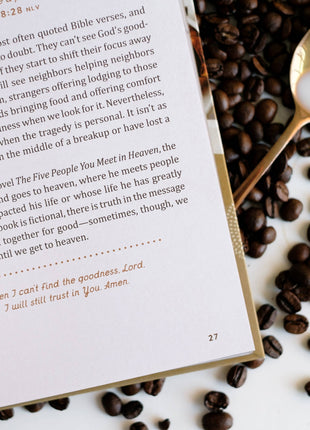 8:28 NLV
ost often quoted Bible verses, and
o doubt. They can't see God's good-
f they start to shift their focus away
ill see neighbors helping neighbors
n, strangers offering lodging to those
ds bringing food and offering comfort
ness when we look for it. Nevertheless,
when the tragedy is personal. It isn't as
n the middle of a breakup or have lost a
ovel The Five People You Meet in Heaven, the
and goes to heaven, where he meets people
pacted his life or whose life he has greatly
book is fictional, there is truth in the message
together for good—sometimes, though, we
until we get to heaven.
en I can't find the goodness, Lord.
I will still trust in You. Amen.
27